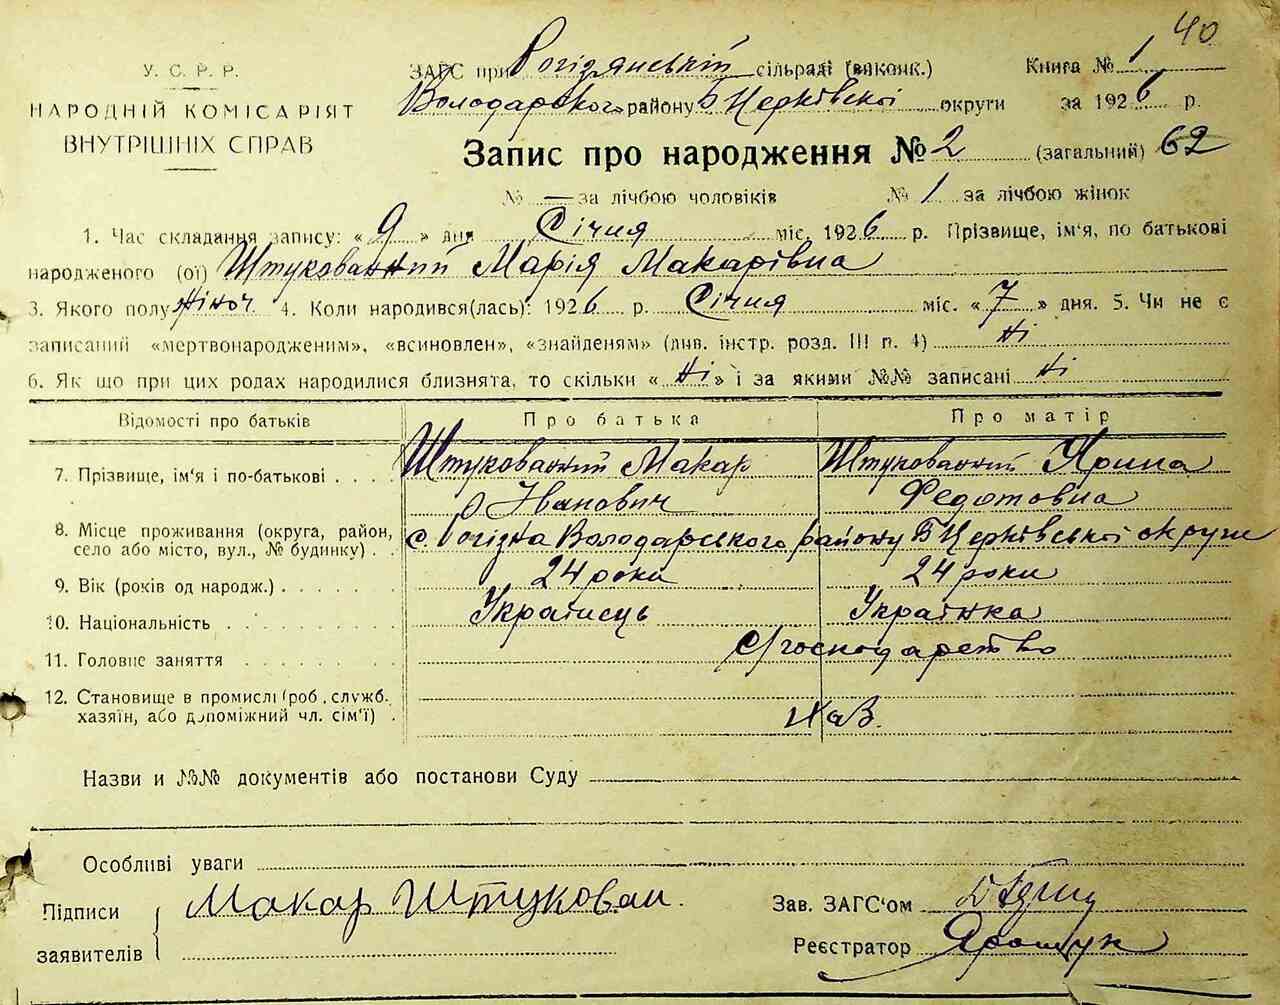 40
У. С. Р. Р.
НАРОДНІЙ КОМІСАРІЯТ
ВНУТРІШНІХ СПРАВ
ЗАГС при Рогізянській сільраді (виконк.) Книга № 1
Володарського району Б Церківської округи за 1926 р.
Запис про народження № 2 (загальний) 62
№ — за лічбою чоловіків № 1 за лічбою жінок
1. Час складання запису: «9» дня Січня міс. 1926 р. Прізвище, ім'я, по батькові
народженого (ої) Штукованний Марія Макарівна
3. Якого полу жіноч 4. Коли народився(лась): 1926 р. Січня міс. «7» дня. 5. Чи не є
записаний «мертвонародженим», «всиновлен», «знайденям» (див. інстр. розд. III п. 4) Ні
6. Як що при цих родах народилися близнята, то скільки «Ні» і за якими №№ записані Ні
Відомості про батьків Про батька Про матір
7. Прізвище, ім'я і по-батькові Штукованний Макар Іванович Штукованний Ярина Федотовна
8. Місце проживання (округа, район,
село або місто, вул., № будинку) с. Рогізна Володарського району Б Церківської округи
9. Вік (років од народж.) 24 роки 24 роки
10. Національність Українець Українка
11. Головне заняття С/господарство
12. Становище в промислі (роб., служб.
хазяїн, або допоміжний чл. сім'ї)
Назви и №№ документів або постанови Суду
Особливі уваги
Підписи
заявителів Макар Штукован
Зав. ЗАГС'ом
Реєстратор Ярощук